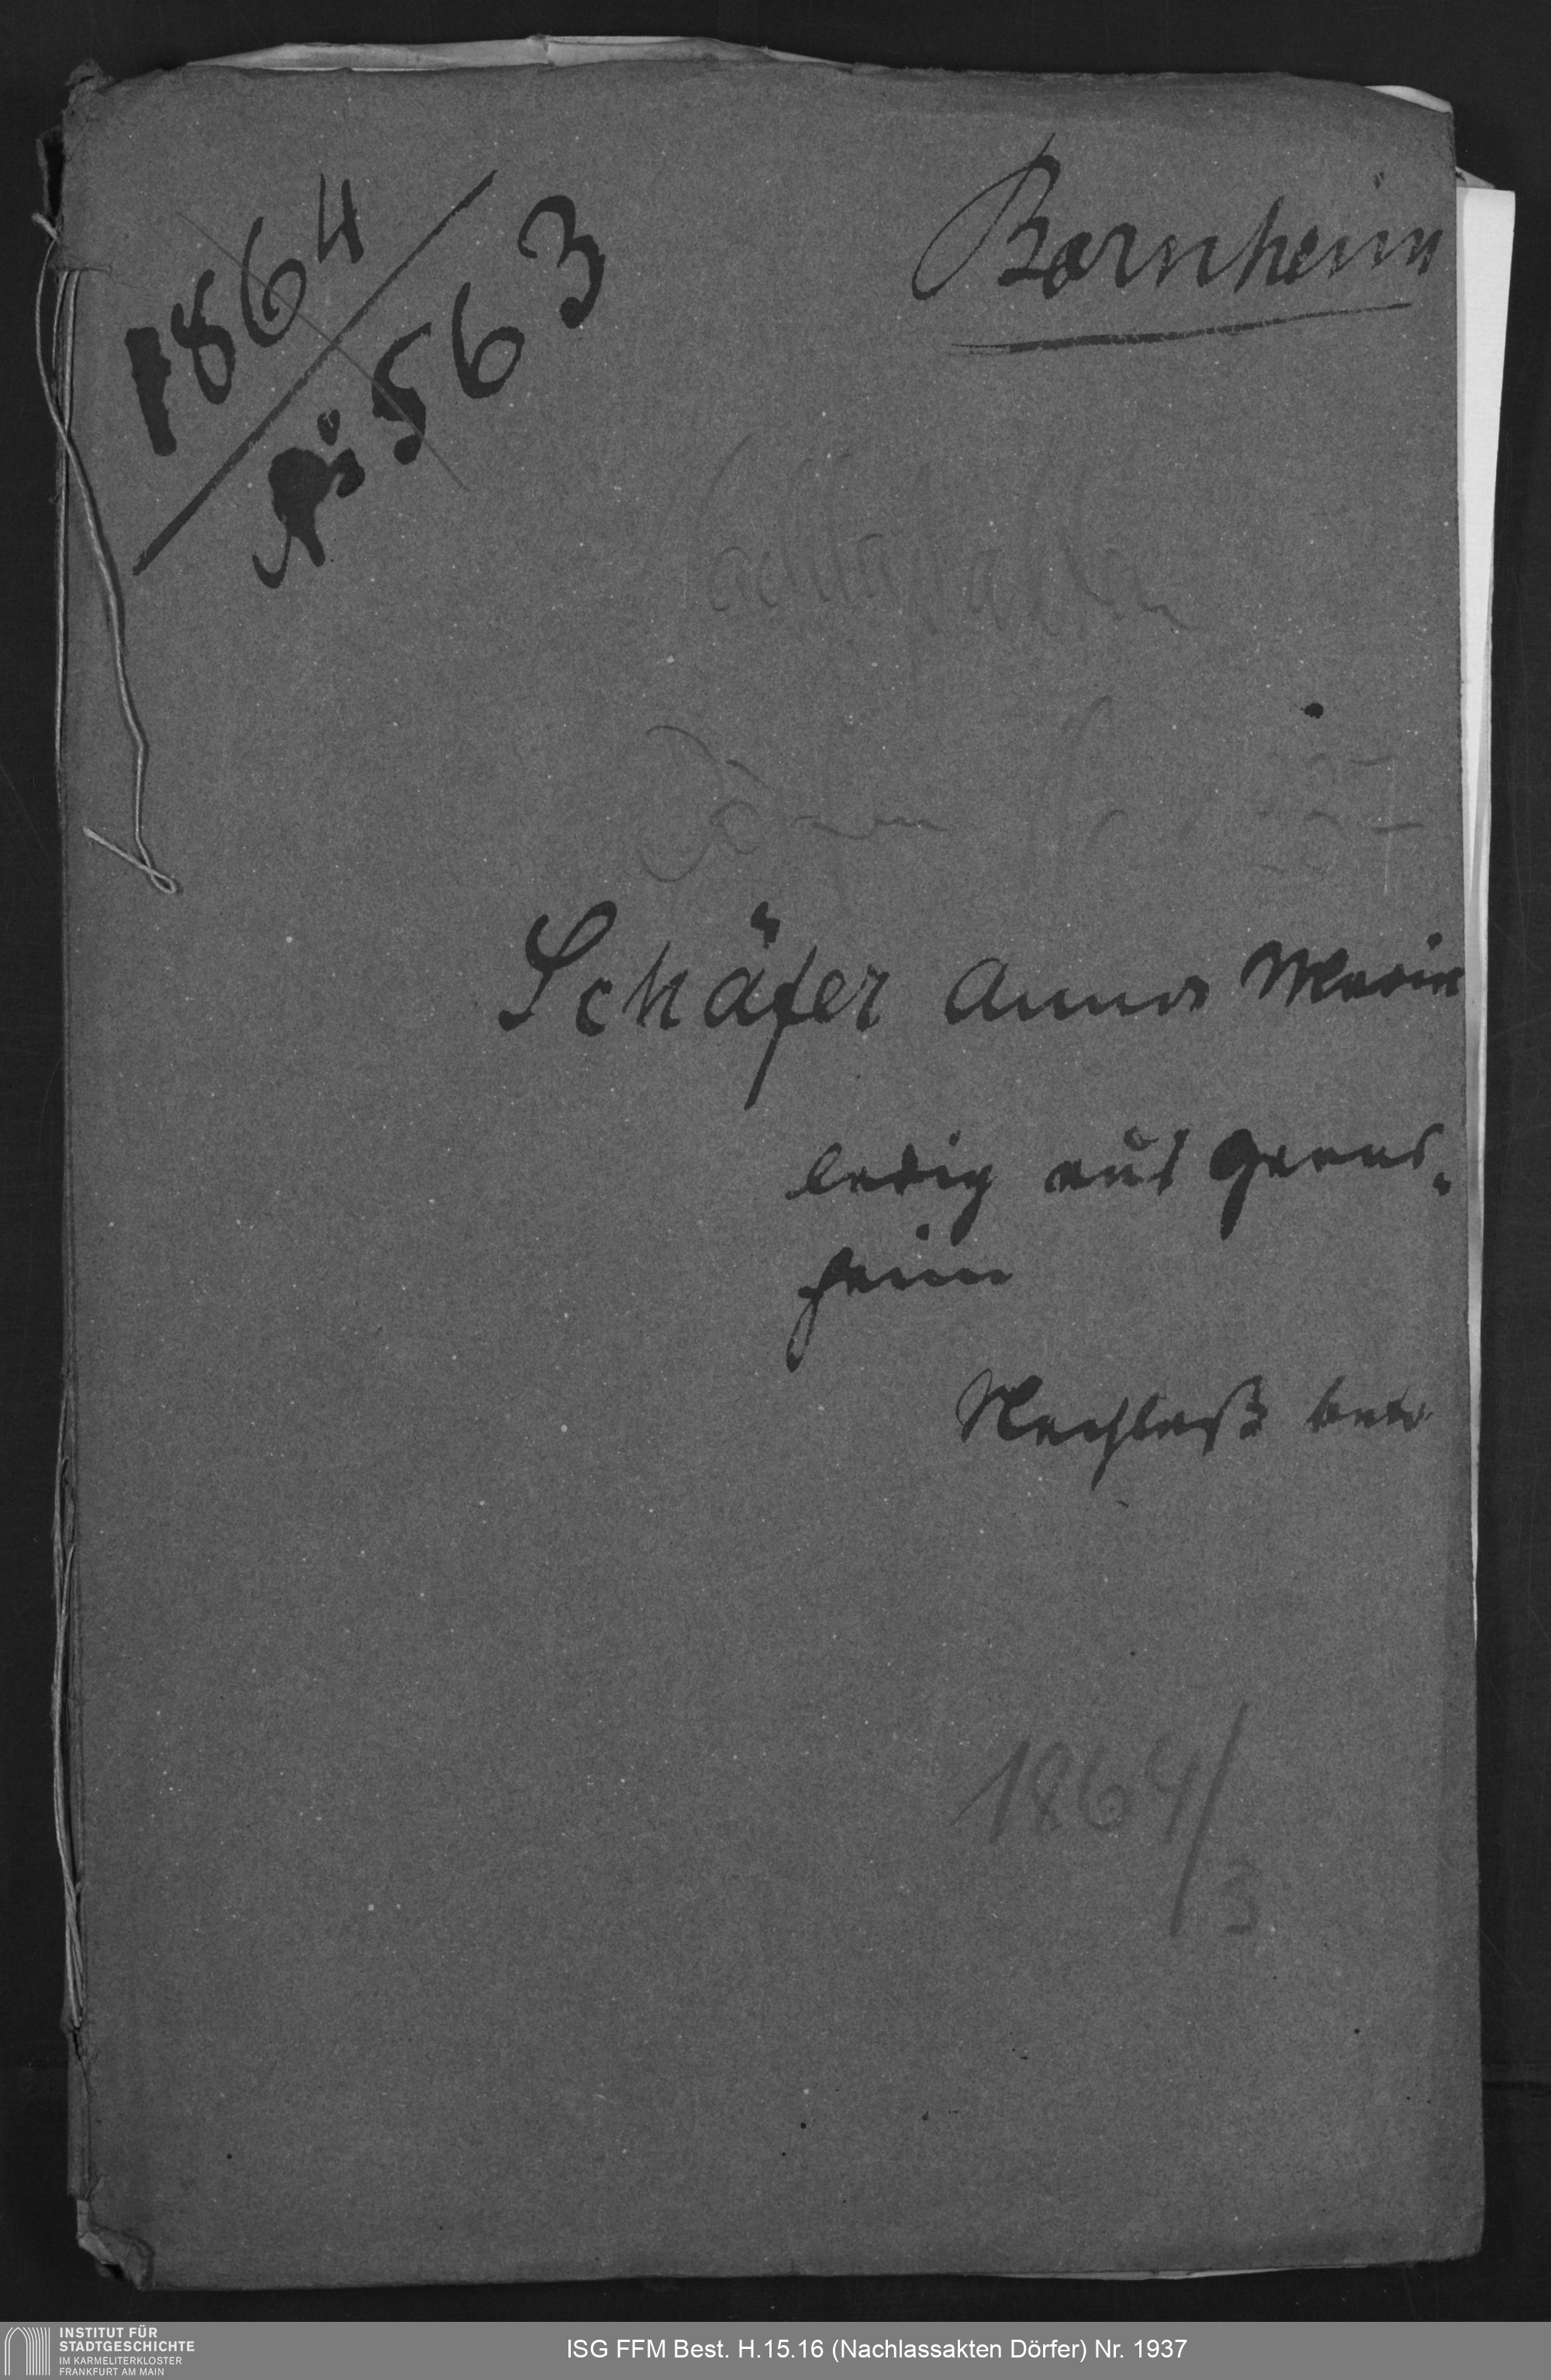 1864
No 563
Bornheim
Schäfer Anna Marie
ledig aus
heim
Nachlaß betr.
1864/3
INSTITUT FÜR
STADTGESCHICHTE
IM KARMELITERKLOSTER
FRANKFURT AM MAIN
ISG FFM Best. H.15.16 (Nachlassakten Dörfer) Nr. 1937